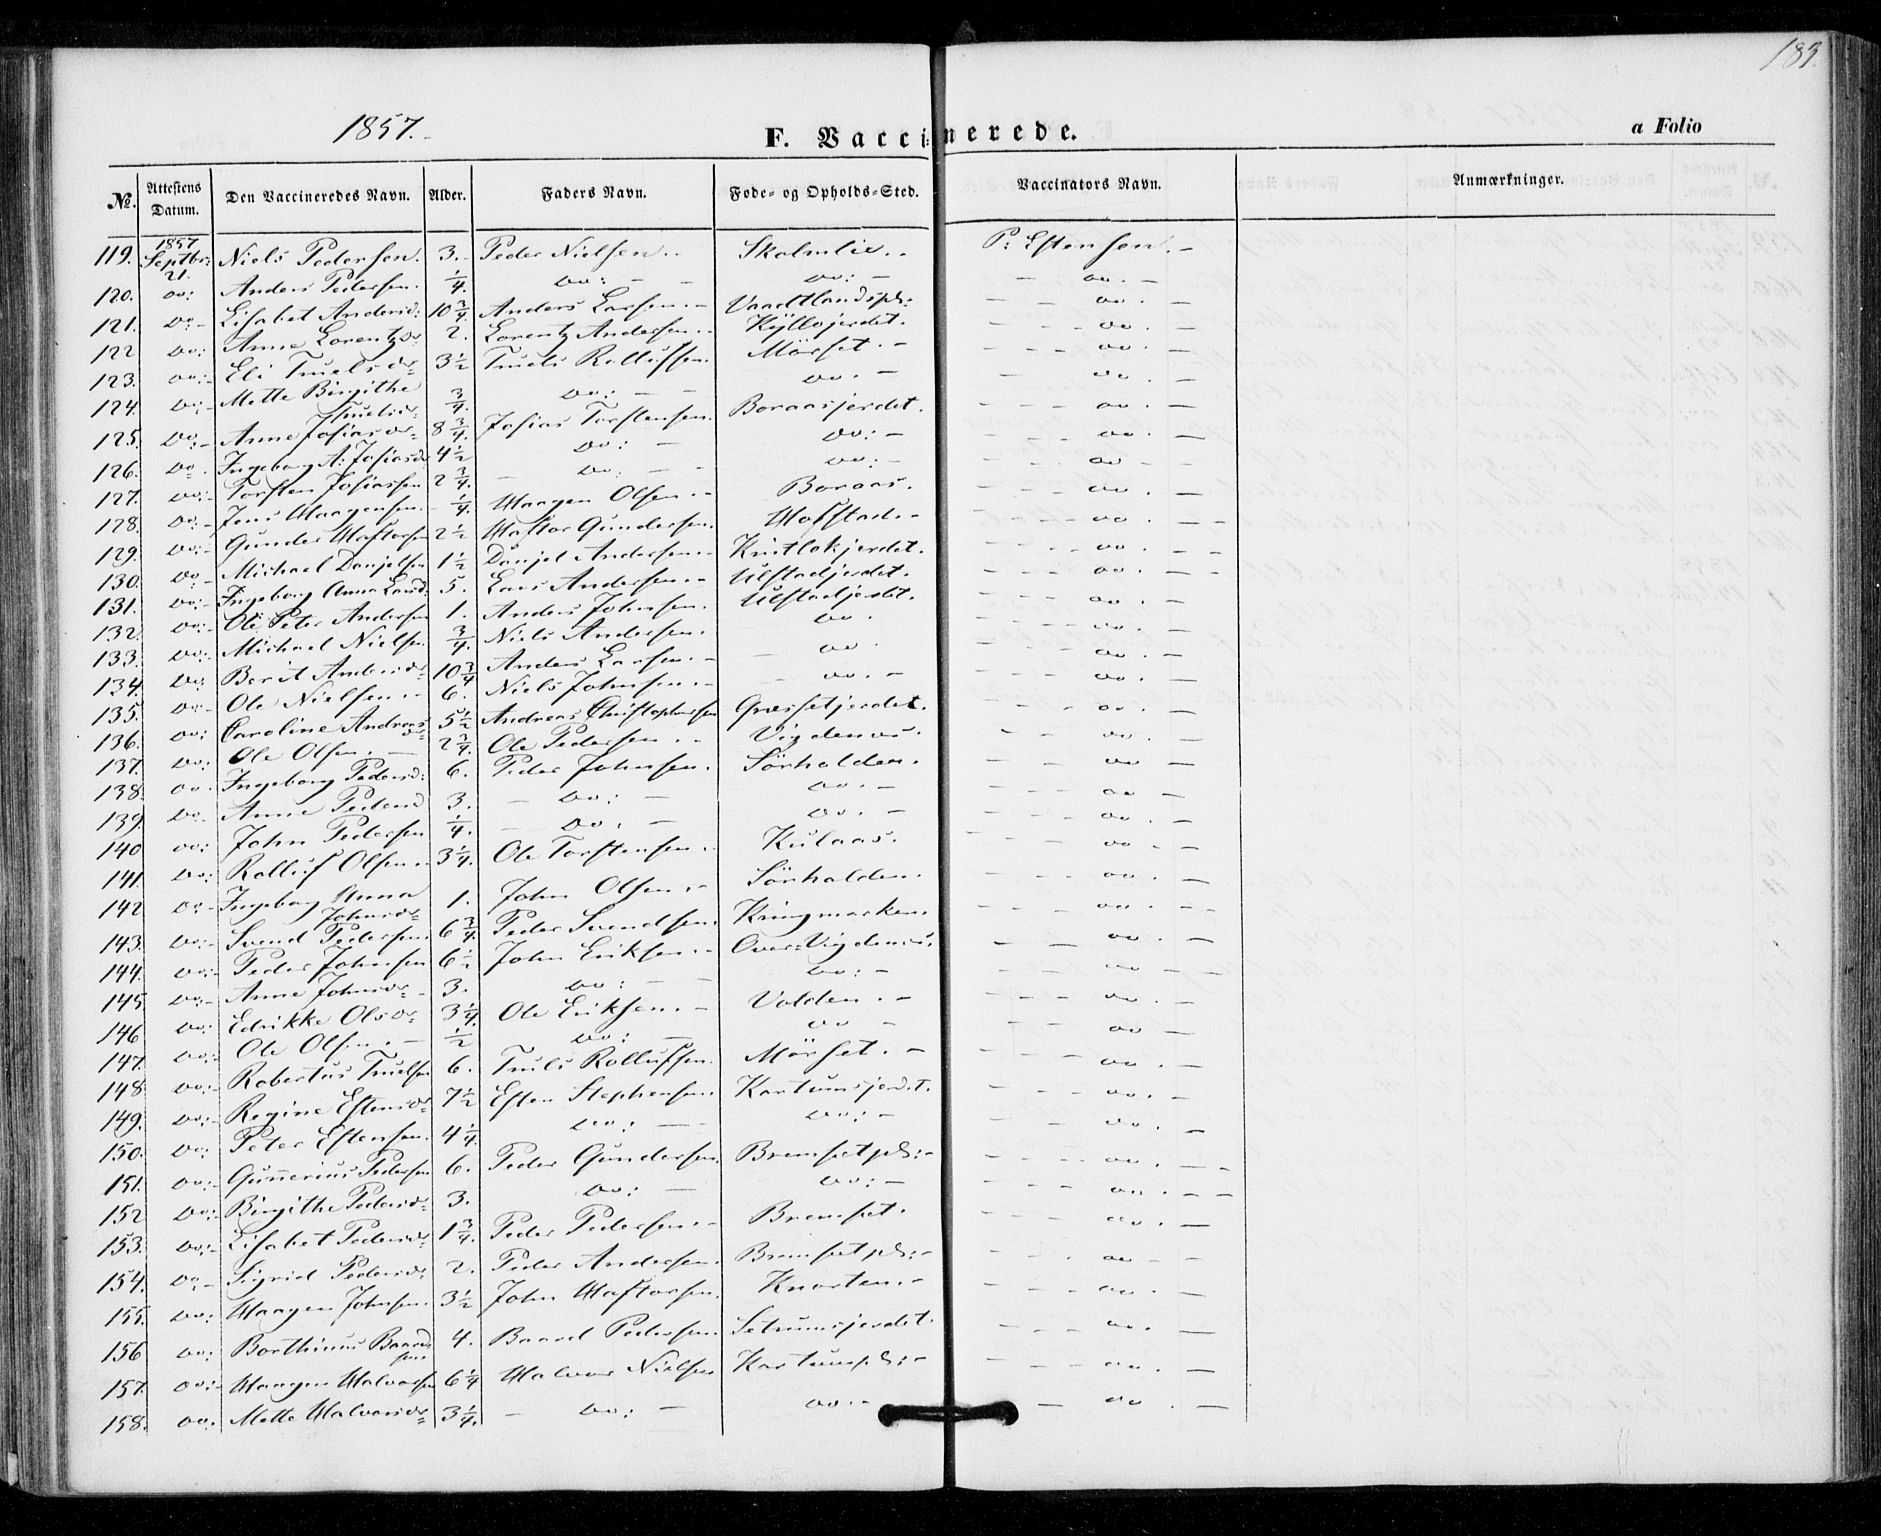 183.
1857.
F. Vaccinerede.
a Folio
No. Attestens Datum. Den Vaccineredes Navn. Alder. Faders Navn. Føde- og Opholds-Sted. Vaccinators Navn. Anmærkninger.
119. 1857 Septbr: 21. Niels Pedersen. 3. Peder Nielsen Skolmlie P: Estensen.
120. do: Anders Pedersen. 1/4. do: do: do.
121. do Lisabet Andersd: 10 3/4. Anders Larsen Vaadtlandspl: do.
122 do: Anne Lorentzdr 2. Lorentz Andersen Kyllojerdet. do.
123. do: Eli Truelsdr 3 1/2 Truels Rolluffsen. Mörset. do.
124. do: Mette Birgithe Truelsdr 3/4. do: do. do.
125. do: Anne Josiasdr 8 3/4. Josias Torstensen. Boraasjerdet. do.
126. do. Ingeborg A: Josiasdr 4 1/2 do: do: do.
127. do: Torsten Josiassen 2 3/4. do: do: do
128. do: Jens Haagensen. 1/4. Haagen Olsen Boraas. do.
129. do: Gunder Hastorsen 2 1/2 Hastor Gundersen. Hofstad do.
130. do Michael Danjelsen 1 1/2 Danjel Andersen Kristlokjerdet. do.
131. do: Ingeborg Anna Larsd. 5. Lars Andersen Ulstadjerdet. do.
132. do: Ole Peter Andersen 1. Anders Johnsen. Ulstadjerdet. do.
133. do: Michael Nielsen 3/4. Niels Andersen. do. do.
134. do: Berit Andersdr 10 3/4 Anders Larsen do. do.
135. do: Ole Nielsen 6. Niels Johnsen do. do.
136. do: Caroline Andreasdr 5 1/2 Andreas Christophersen Græssetjerdet. do.
137. do: Ole Olsen. 2 3/4. Ole Pedersen Vigdenes. do.
138. do. Ingeborg Pedersd: 6. Peder Johnsen. Sörholden. do
139. do. Anne Pedersd 3. do: do. do.
140 do: John Pedersen 1/4. do. do. do.
141. do: Rolluf Olsen 3 1/4. Ole Torstensen Kulaas. do
142 do Ingeborg Anna Johnsdr 1. John Olsen Sörholden. do.
143. do: Svend Pedersen. 6 3/4. Peder Svendsen. Kringmarken. do.
144. do: Peder Johnsen 6 1/2 John Eriksen Over-Vigdenes. do.
145. do: Anne Johnsdr 3. do: do: do.
146 do: Edrikke Olsdr 3 1/4. Ole Eriksen. Volden. do.
147. do: Ole Olsen. 1/2 do: do do.
148 do: Robertus Truelsen 6. Truels Rolluffsen. Mörset. do.
149. do: Regine Estensdr 7 1/2 Esten Stephensen. Kartumsjerdet. do.
150. do: Peter Estensen. 4 1/4. do: do: do.
151. do: Gunnerius Pedersen 6. Peder Gundersen. Bremsetpl: do.
152 do: Birgithe Pedersdr 3. do: do: do.
153. do: Lisabet Pedersdr 1 3/4. Peder Pedersen Bremset. do.
154. do Sigrid Pedersdr 2. Peder Andersen. Bremsetpl: do
155. do: Haagen Johnsen. 3 1/2 John Hastorsen. Knorten do.
156 do: Borthinus Baardsen 4. Baard Pedersen Setrumsjerdet. do.
157. do: Haagen Halvorsen 6 1/4 Halvor Nielsen Kartumspl: do.
158. do. Mette Halvorsdr 3 1/4. do: do. do.